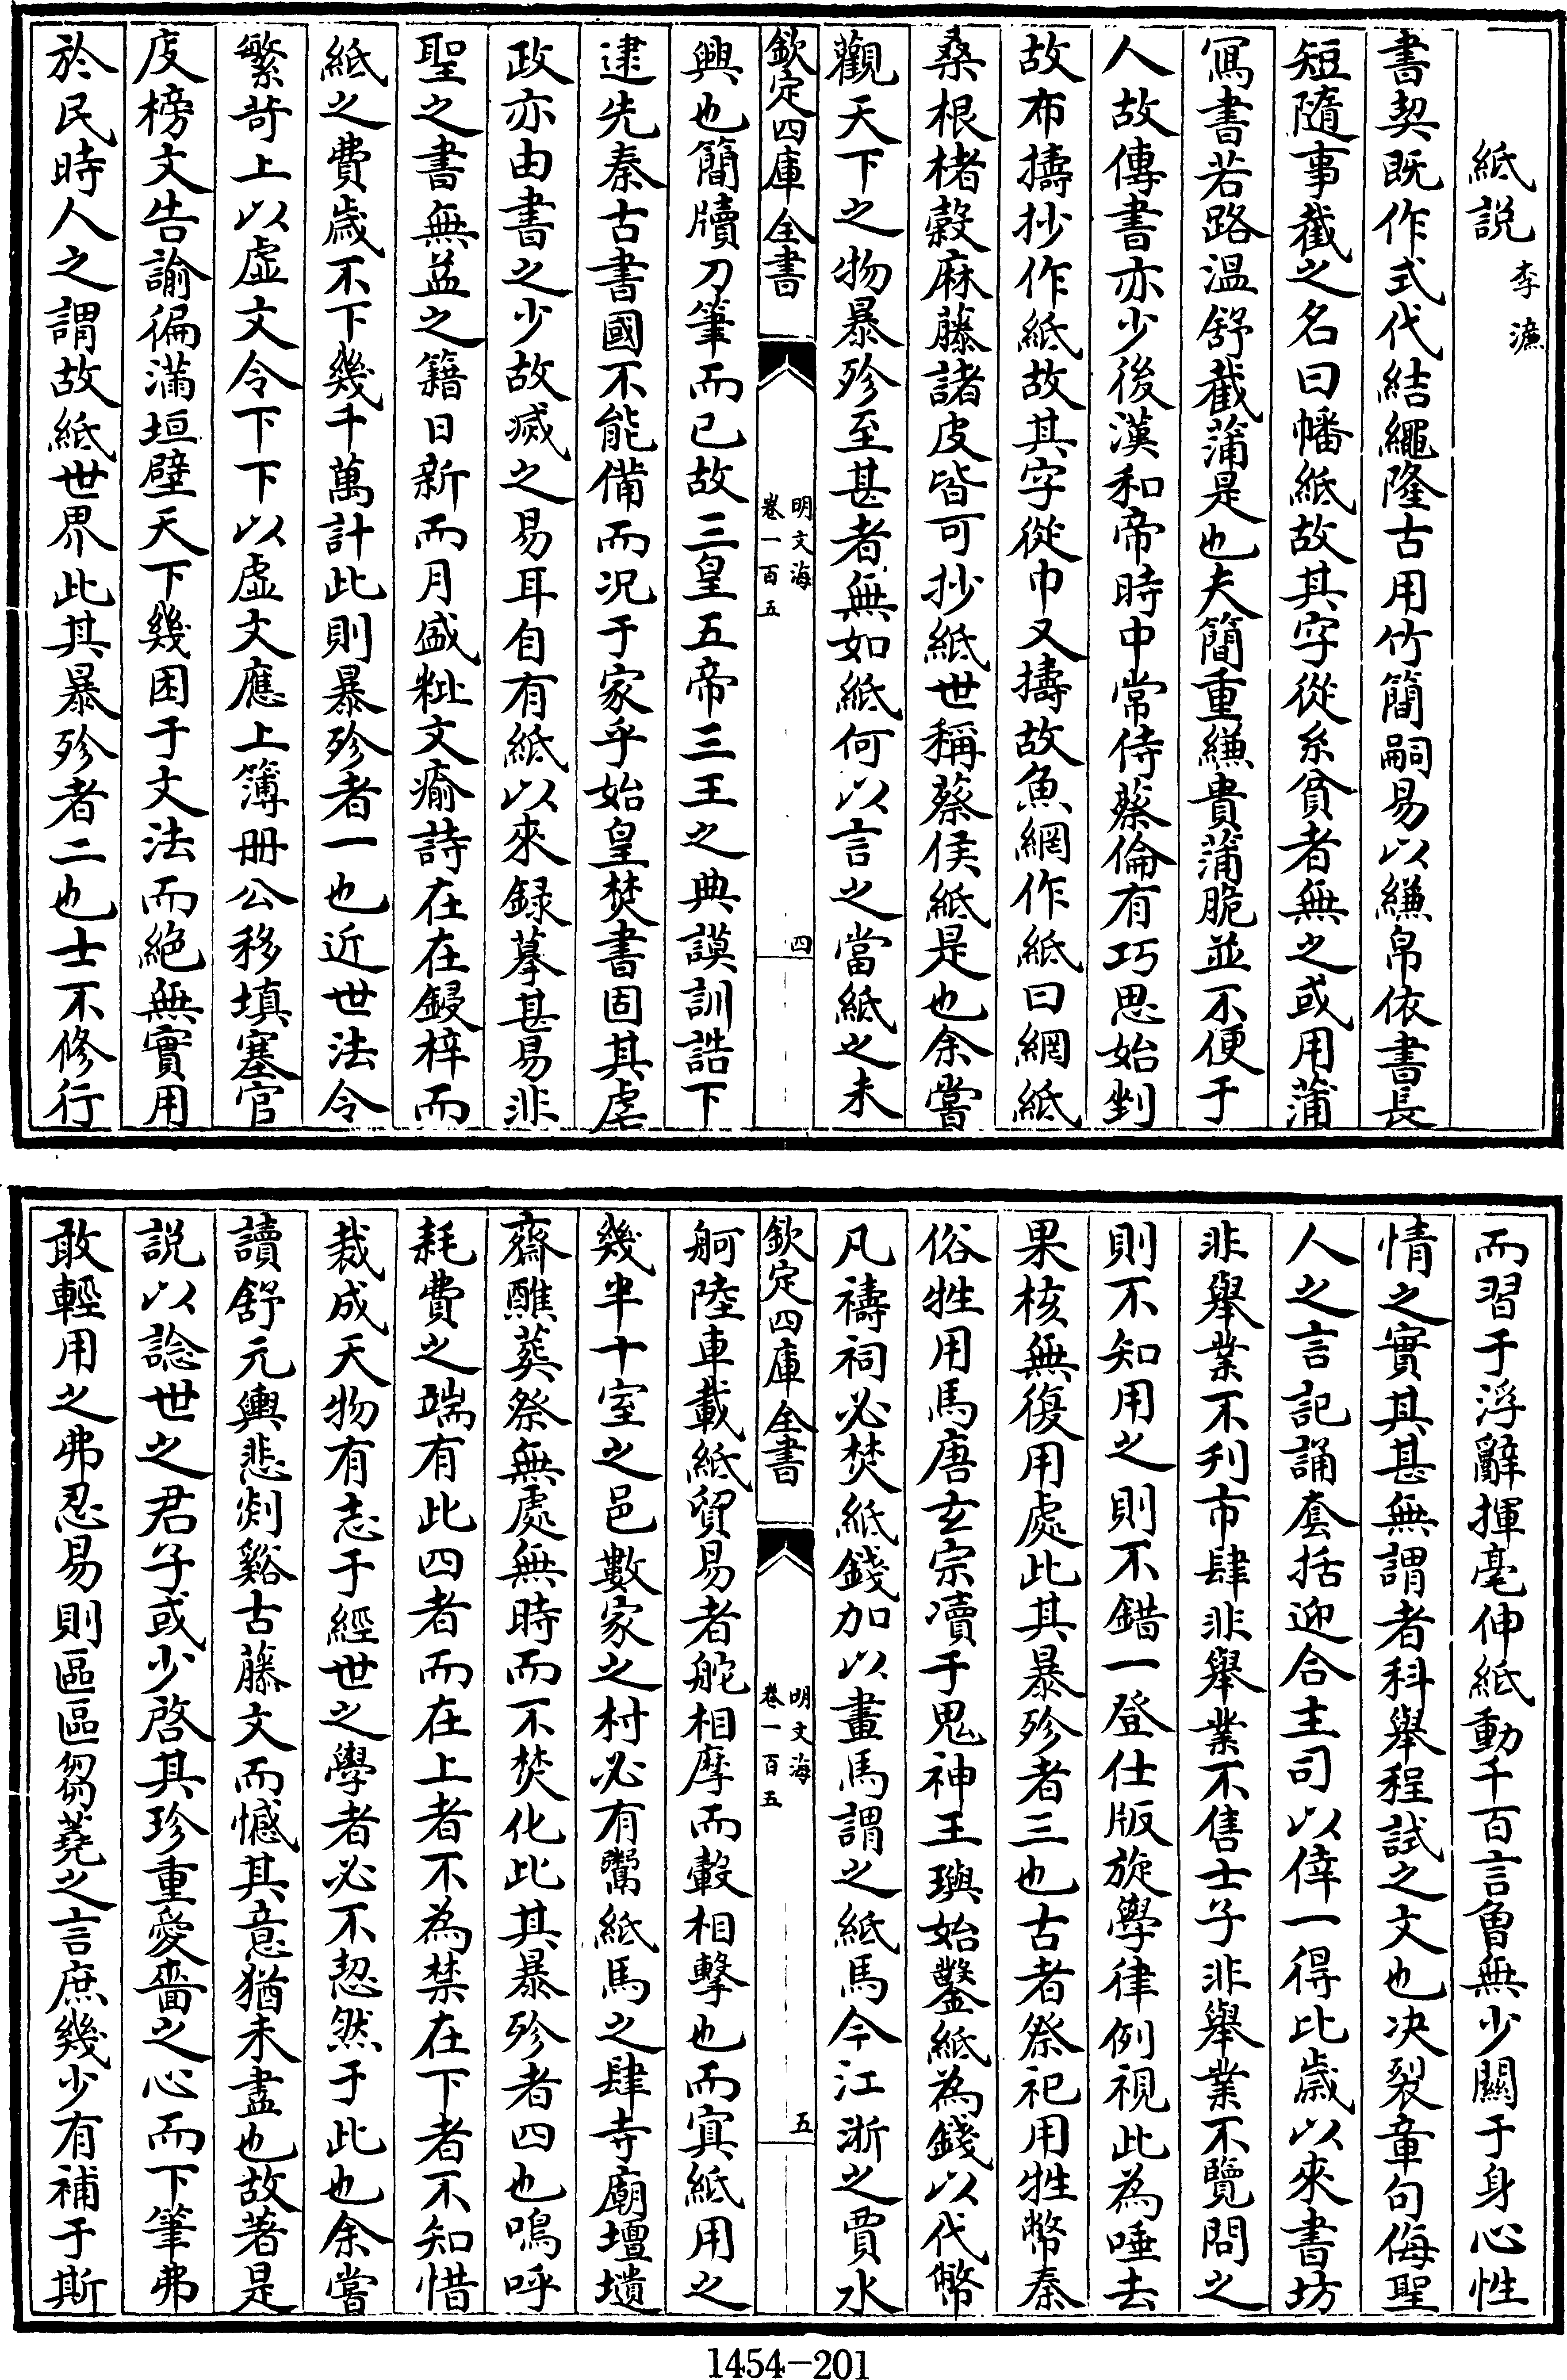 紙説 李濂
書契既作式代結繩隆古用竹簡嗣易以縑帛依書長
短隨事截之名曰幡紙故其字從糸貧者無之或用蒲
寫書若路溫舒截蒲是也夫簡重縑貴蒲脆並不便于
人故傳書亦少後漢和帝時中常侍蔡倫有巧思始剉
故布擣抄作紙故其字從巾又擣故魚網作紙曰網紙
桑根楮穀麻藤諸皮皆可抄紙世稱蔡侯紙是也余嘗
觀天下之物暴殄至甚者無如紙何以言之當紙之未
欽定四庫全書
明文海
卷一百五
四
興也簡牘刀筆而已故三皇五帝三王之典謨訓誥下
逮先秦古書國不能備而況于家乎始皇焚書固其虐
政亦由書之少故滅之易耳自有紙以來録摹甚易非
聖之書無益之籍日新而月盛粃文瘉詩在在鋟梓而
紙之費歲不下幾千萬計此則暴殄者一也近世法令
繁苛上以虛文令下下以虛文應上簿冊公移填塞官
庋榜文告諭徧滿垣壁天下幾困于文法而絕無實用
於民時人之謂故紙世界此其暴殄者二也士不修行
而習于浮辭揮毫伸紙動千百言曾無少關于身心性
情之實其甚無謂者科舉程試之文也決裂章句侮聖
人之言記誦套括迎合主司以倖一得比歲以來書坊
非舉業不刋市肆非舉業不售士子非舉業不覽問之
則不知用之則不錯一登仕版旋學律例視此為唾去
果核無復用處此其暴殄者三也古者祭祀用牲幣秦
俗牲用馬唐玄宗瀆于鬼神王璵始鑿紙為錢以代幣
凡禱祠必焚紙錢加以畫馬謂之紙馬今江浙之賈水
欽定四庫全書
明文海
卷一百五
五
舸陸車載紙貿易者舵相摩而轂相擊也而寘紙用之
幾半十室之邑數家之村必有鬻紙馬之肆寺廟壇壝
齋醮葬祭無處無時而不焚化此其暴殄者四也嗚呼
耗費之端有此四者而在上者不為禁在下者不知惜
裁成天物有志于經世之學者必不恝然于此也余嘗
讀舒元輿悲剡谿古藤文而憾其意猶未盡也故著是
説以諗世之君子或少啓其珍重愛嗇之心而下筆弗
敢輕用之弗忍易則區區芻蕘之言庶幾少有補于斯
1454-201